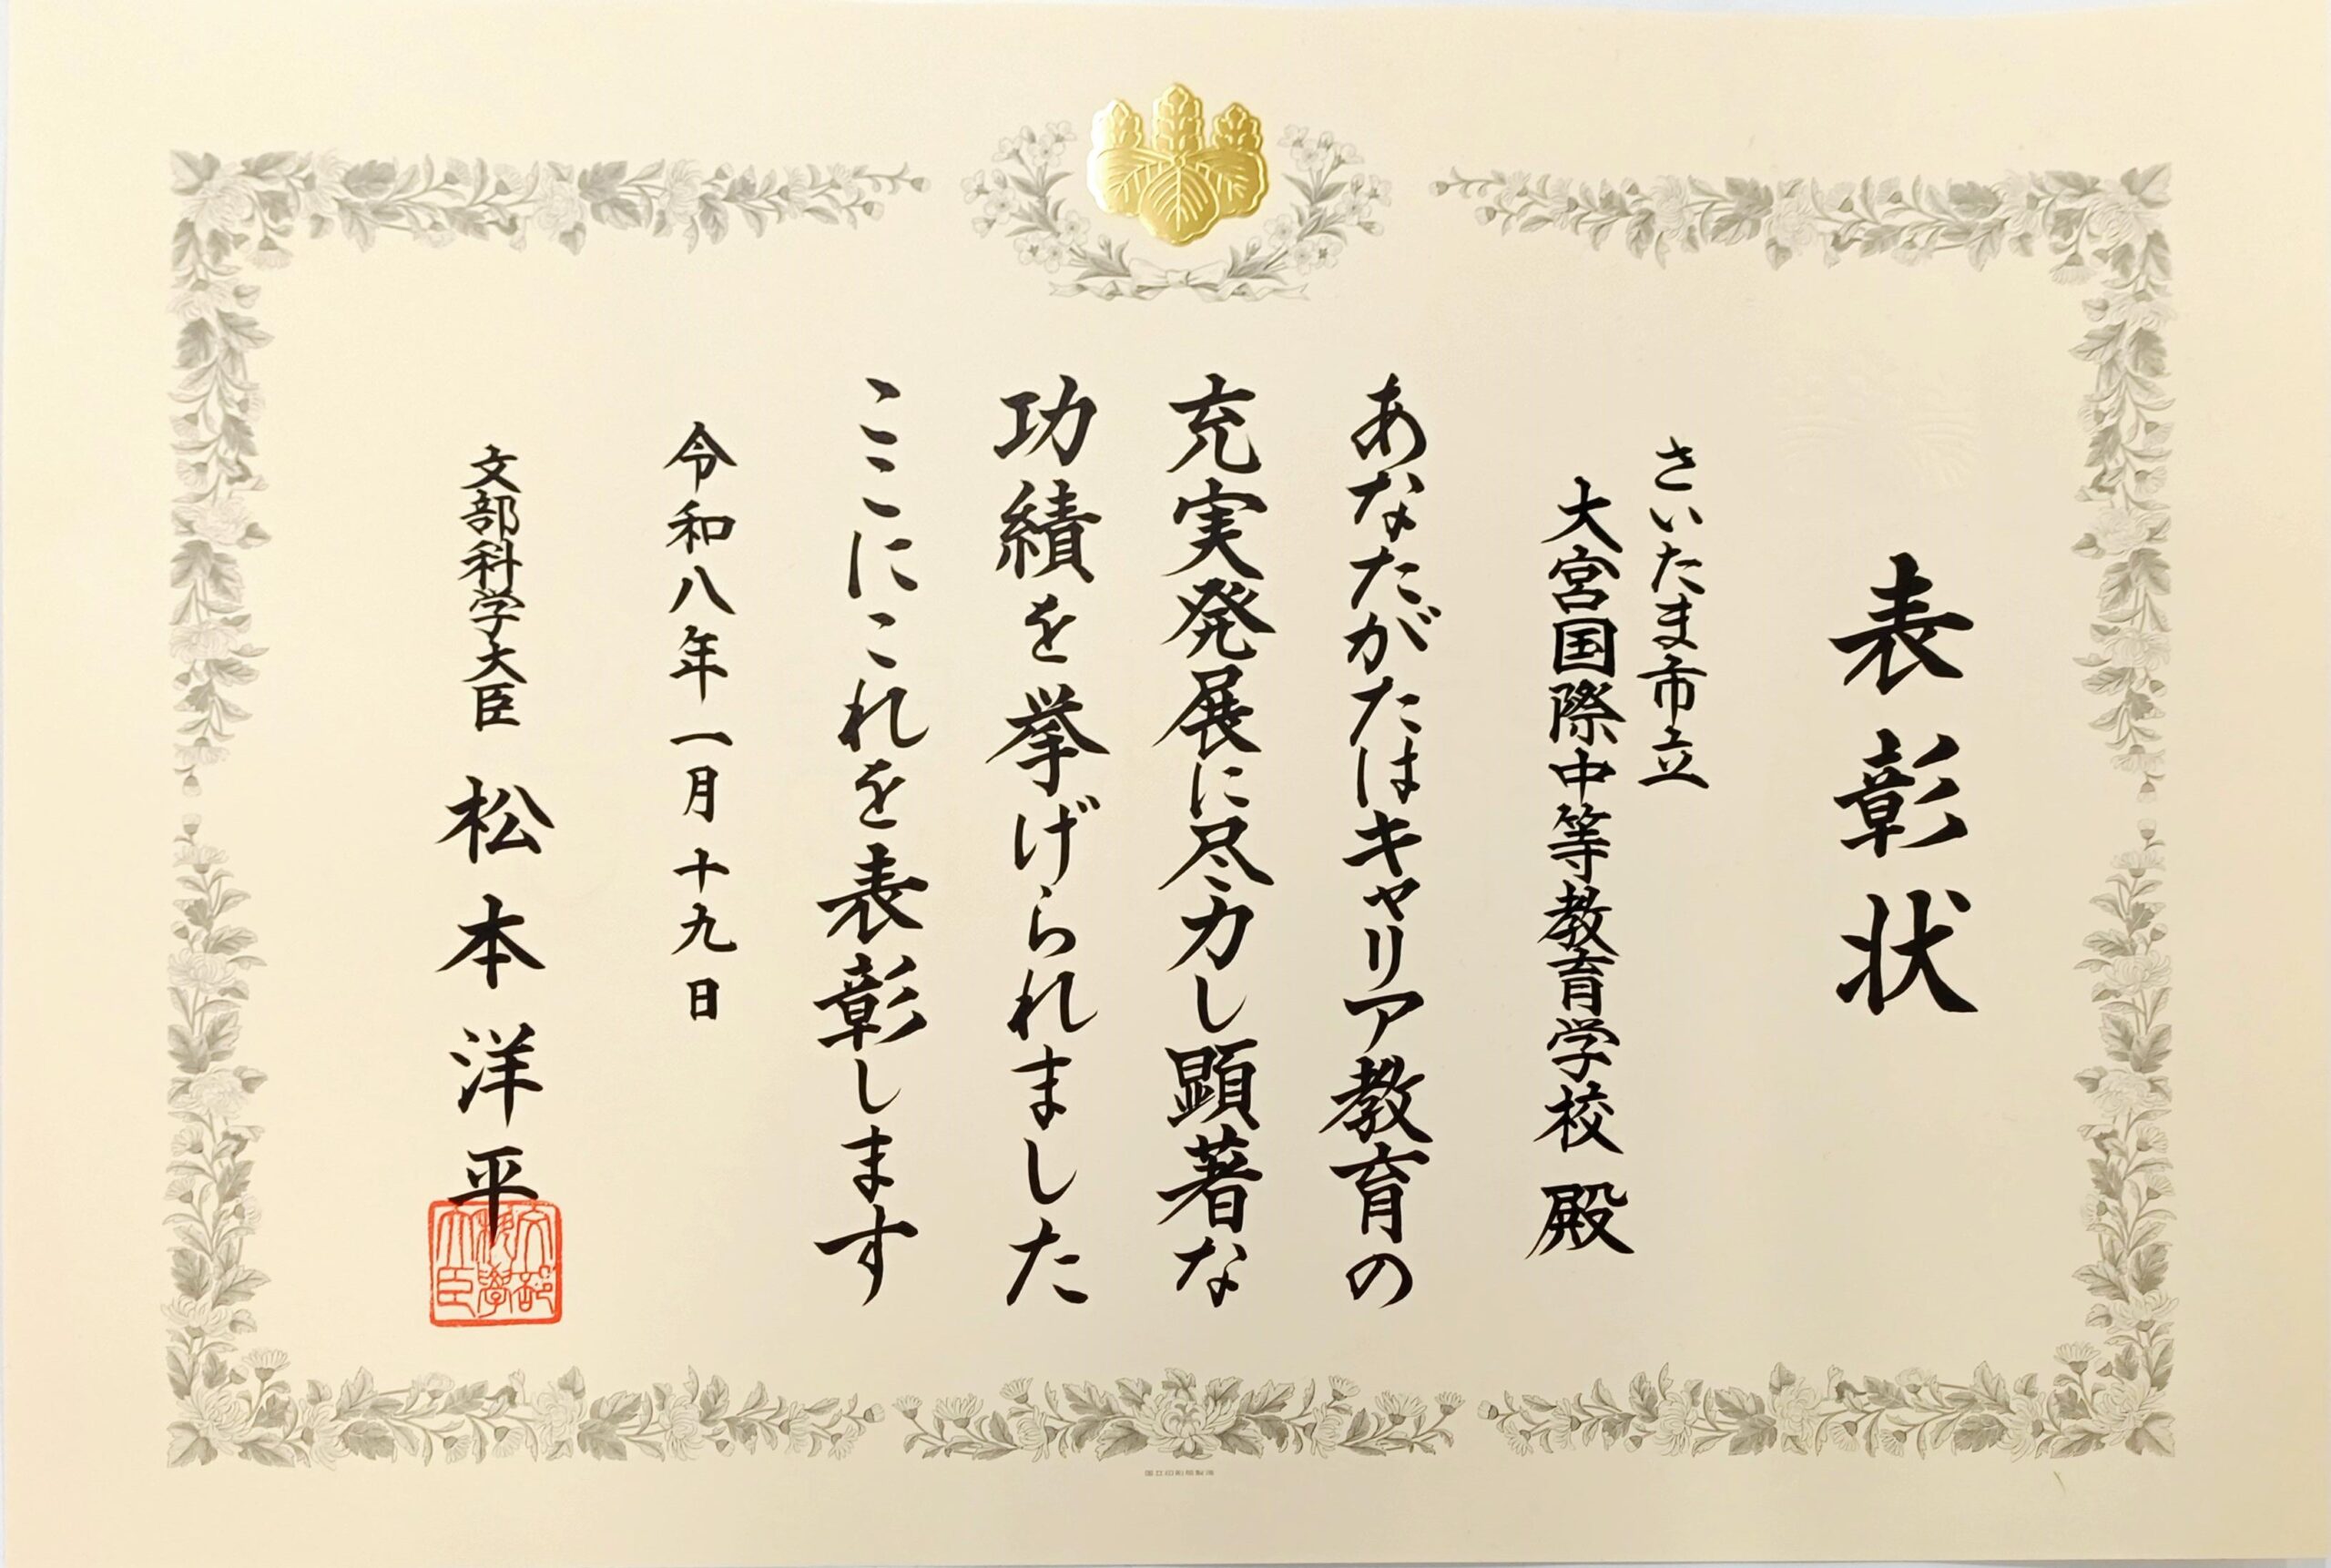 表彰状
さいたま市立
大宮国際中等教育学校 殿
あなたがたはキャリア教育の
充実発展に尽力し顕著な
功績を挙げられました
ここにこれを表彰します
令和八年一月十九日
文部科学大臣 松本洋平
文部科学大臣
国立印刷局製造